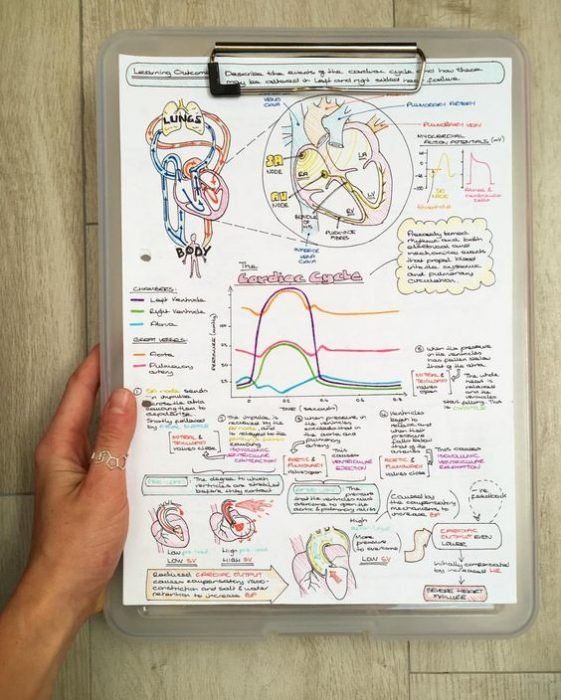 Learning Outcome: Describe the events of the cardiac cycle and how these
may be altered in left and right sided heart failure.
VENA
CAVA
PULMONARY ARTERY
PULMONARY VEIN
LUNGS
BODY
SA
NODE
AV
NODE
BUNDLE
OF HIS
PURKINJE
FIBRES
RA
LA
RV
LV
INFERIOR
VENA
CAVA
MYOCARDIAL
ACTION POTENTIALS (mV)
SA
NODE
Precisely timed
rhythmic and both
electrical and
mechanical events
that propel blood
into the systemic
and pulmonary
circulation.
The
Cardiac Cycle
CHAMBERS:
Left Ventricle
Right Ventricle
Atria
GREAT VESSELS:
Aorta
Pulmonary
artery
PRESSURE (mmHg)
TIME (seconds)
0
0.2
0.4
0.6
0.8
① SA node sends
an impulse
across the atria
causing them to
depolarise.
Shortly followed
by
MITRAL &
TRICUSPID
valves close
② The impulse is
received by the
AV node, and
is relayed to the
causing
VENTRICULAR
CONTRACTION
③ When pressure in
the ventricles
exceeds that in
the aorta and
pulmonary
artery
AORTIC &
PULMONARY
valves open
This
causes
VENTRICULAR
EJECTION
④ Ventricles
begin to
relax and
when their
pressure
falls below
that of the
arteries
AORTIC &
PULMONARY
valves close
This causes
ISOVOLUMIC
VENTRICULAR
RELAXATION
⑤ When the pressure
in the ventricles
has fallen below
that of the atria
MITRAL &
TRICUSPID
valves
open
The whole
heart is
relaxed
and the
ventricles
start filling. This
is DIASTOLE
PRE-LOAD
The degree to which
ventricles are stretched
before they contract
Low pre-load
LOW SV
High pre-load
HIGH SV
The pressure
that the ventricles must
overcome to open the
aortic & pulmonary valves
High
More
pressure
to overcome
LOW SV
Caused by the
compensatory
mechanisms to
increase BP
+ve
FEEDBACK
CARDIAC
OUTPUT even
lower
Initially compensated
by increased HR
SEVERE HEART
FAILURE
Reduced CARDIAC OUTPUT
causes compensatory vaso-
constriction and salt & water
retention to increase BP